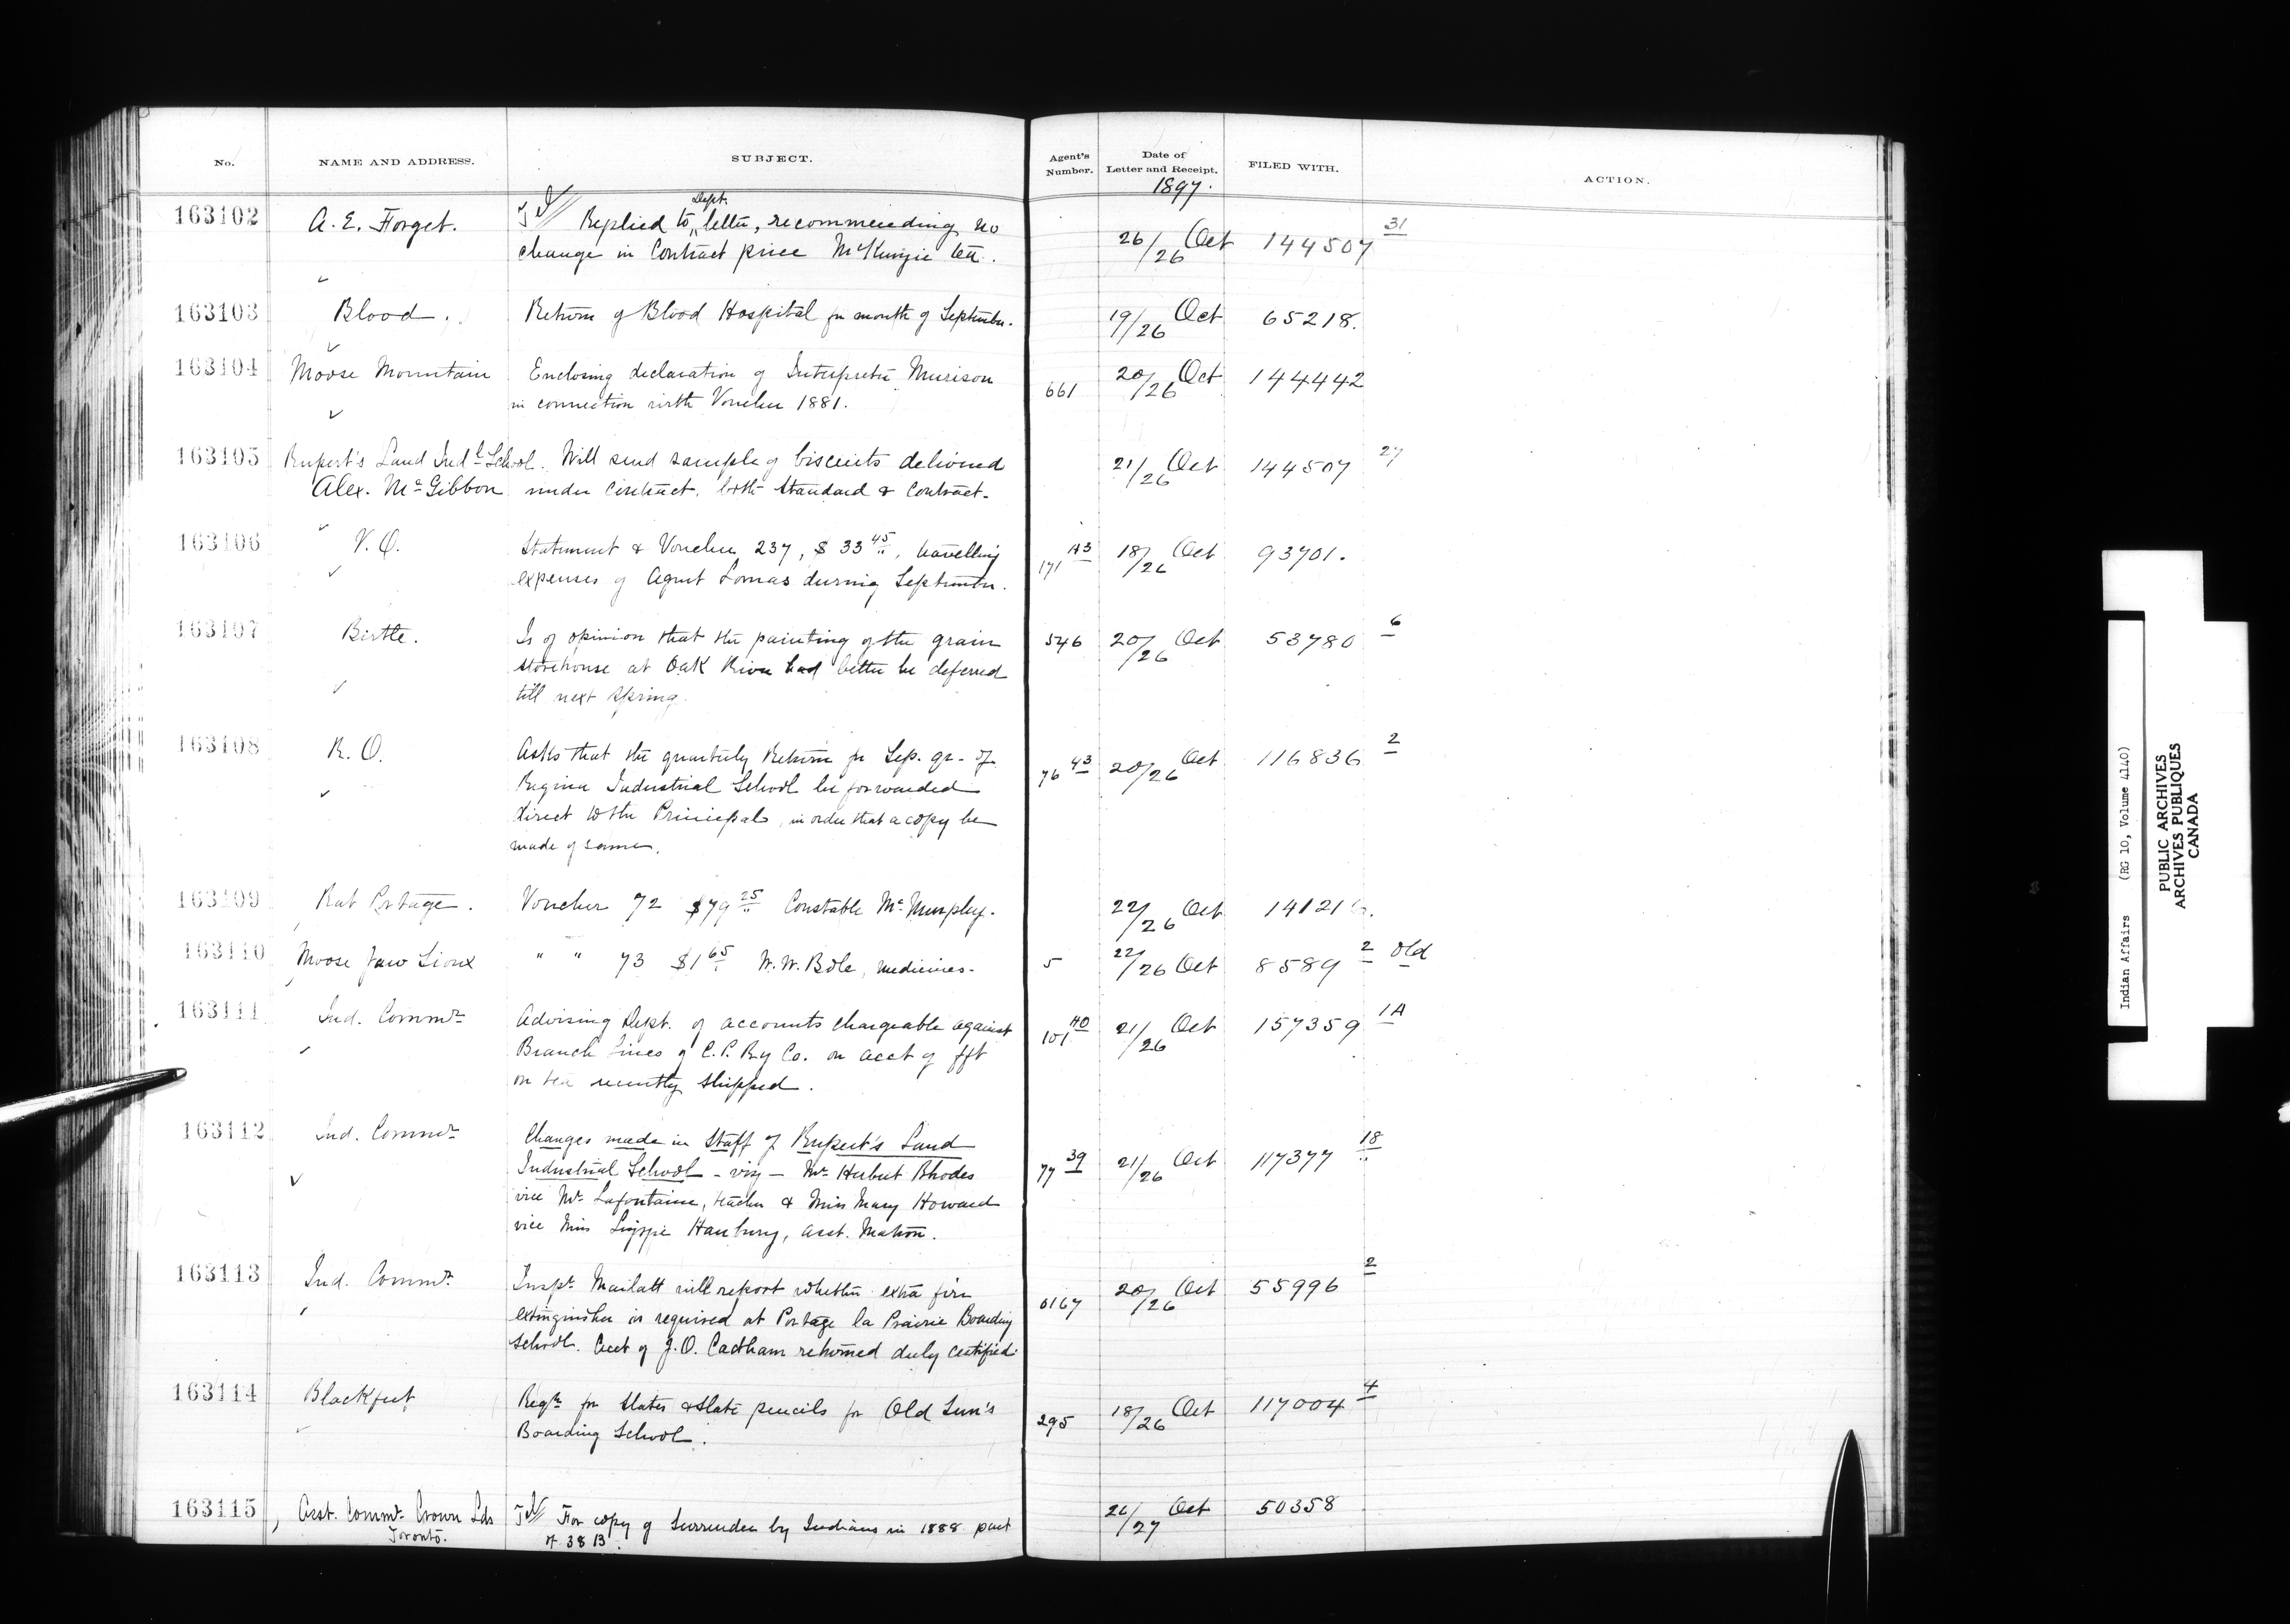 No.
NAME AND ADDRESS.
SUBJECT.
Agent's Number.
Date of Letter and Receipt.
FILED WITH.
ACTION.
1897.
163102 A. E. Forget. Tel Replied to Dept. letter, recommending no 26/26 Oct 144507 31
change in Contract price McKenzie tea.
163103 Blood. Return of Blood Hospital for month of September. 19/26 Oct 65218.
163104 Moose Mountain Enclosing declaration of Interpreter Murison 661 20/26 Oct 144442
in connection with Voucher 1881.
163105 Rupert's Land Indl School. Will send sample of biscuits delivered 21/26 Oct 144507 27
Alex. McGibbon under contract, both standard & contract.
163106 V.O. Statement & Voucher 237, $33 45, travelling 171 43 18/26 Oct 93701.
expenses of Agent Lomas during September.
163107 Birtle. Is of opinion that the painting of the grain 546 20/26 Oct 53780 6
storehouse at Oak River had better be deferred
till next spring.
163108 R.O. Asks that the quarterly Return for Sep. qr. of 76 43 20/26 Oct 116836 2
Regina Industrial School be forwarded
direct to the Principal, in order that a copy be
made of same.
163109 Rat Portage. Voucher 72 $79 25 Constable McMurphy. 22/26 Oct 14121
163110 Moose Jaw Sioux " " 73 $1 65 W.W. Bole, medicines. 5 22/26 Oct 8589 2 Old
163111 Ind. Commr Advising Dept. of accounts chargeable against 101 40 21/26 Oct 157359 1A
Branch Lines of C.P. Ry Co. on acct of fft
on tea recently shipped.
163112 Ind. Commr Changes made in Staff of Rupert's Land 77 39 21/26 Oct 117377 18
Industrial School - viz - Mr. Hubert Rhodes
vice Mr. Lafontaine, teacher & Miss Mary Howard
vice Miss Lizzie Hanbury, asst. Matron.
163113 Ind. Commr. Inspr. Marlatt will report whether extra fire 0167 20/26 Oct 55996 2
extinguisher is required at Portage la Prairie Boarding
School. Acct of J.O. Cadham returned duly certified.
163114 Blackfeet Reqn for slates & slate pencils for Old Sun's 295 18/26 Oct 117004 4
Boarding School.
163115 Asst. Commr. Crown Lds Tel For copy of Surrender by Indians in 1888 part 26/27 Oct 50358
Toronto. of 38 B.
Indian Affairs (RG 10, Volume 4140)
PUBLIC ARCHIVES
ARCHIVES PUBLIQUES
CANADA